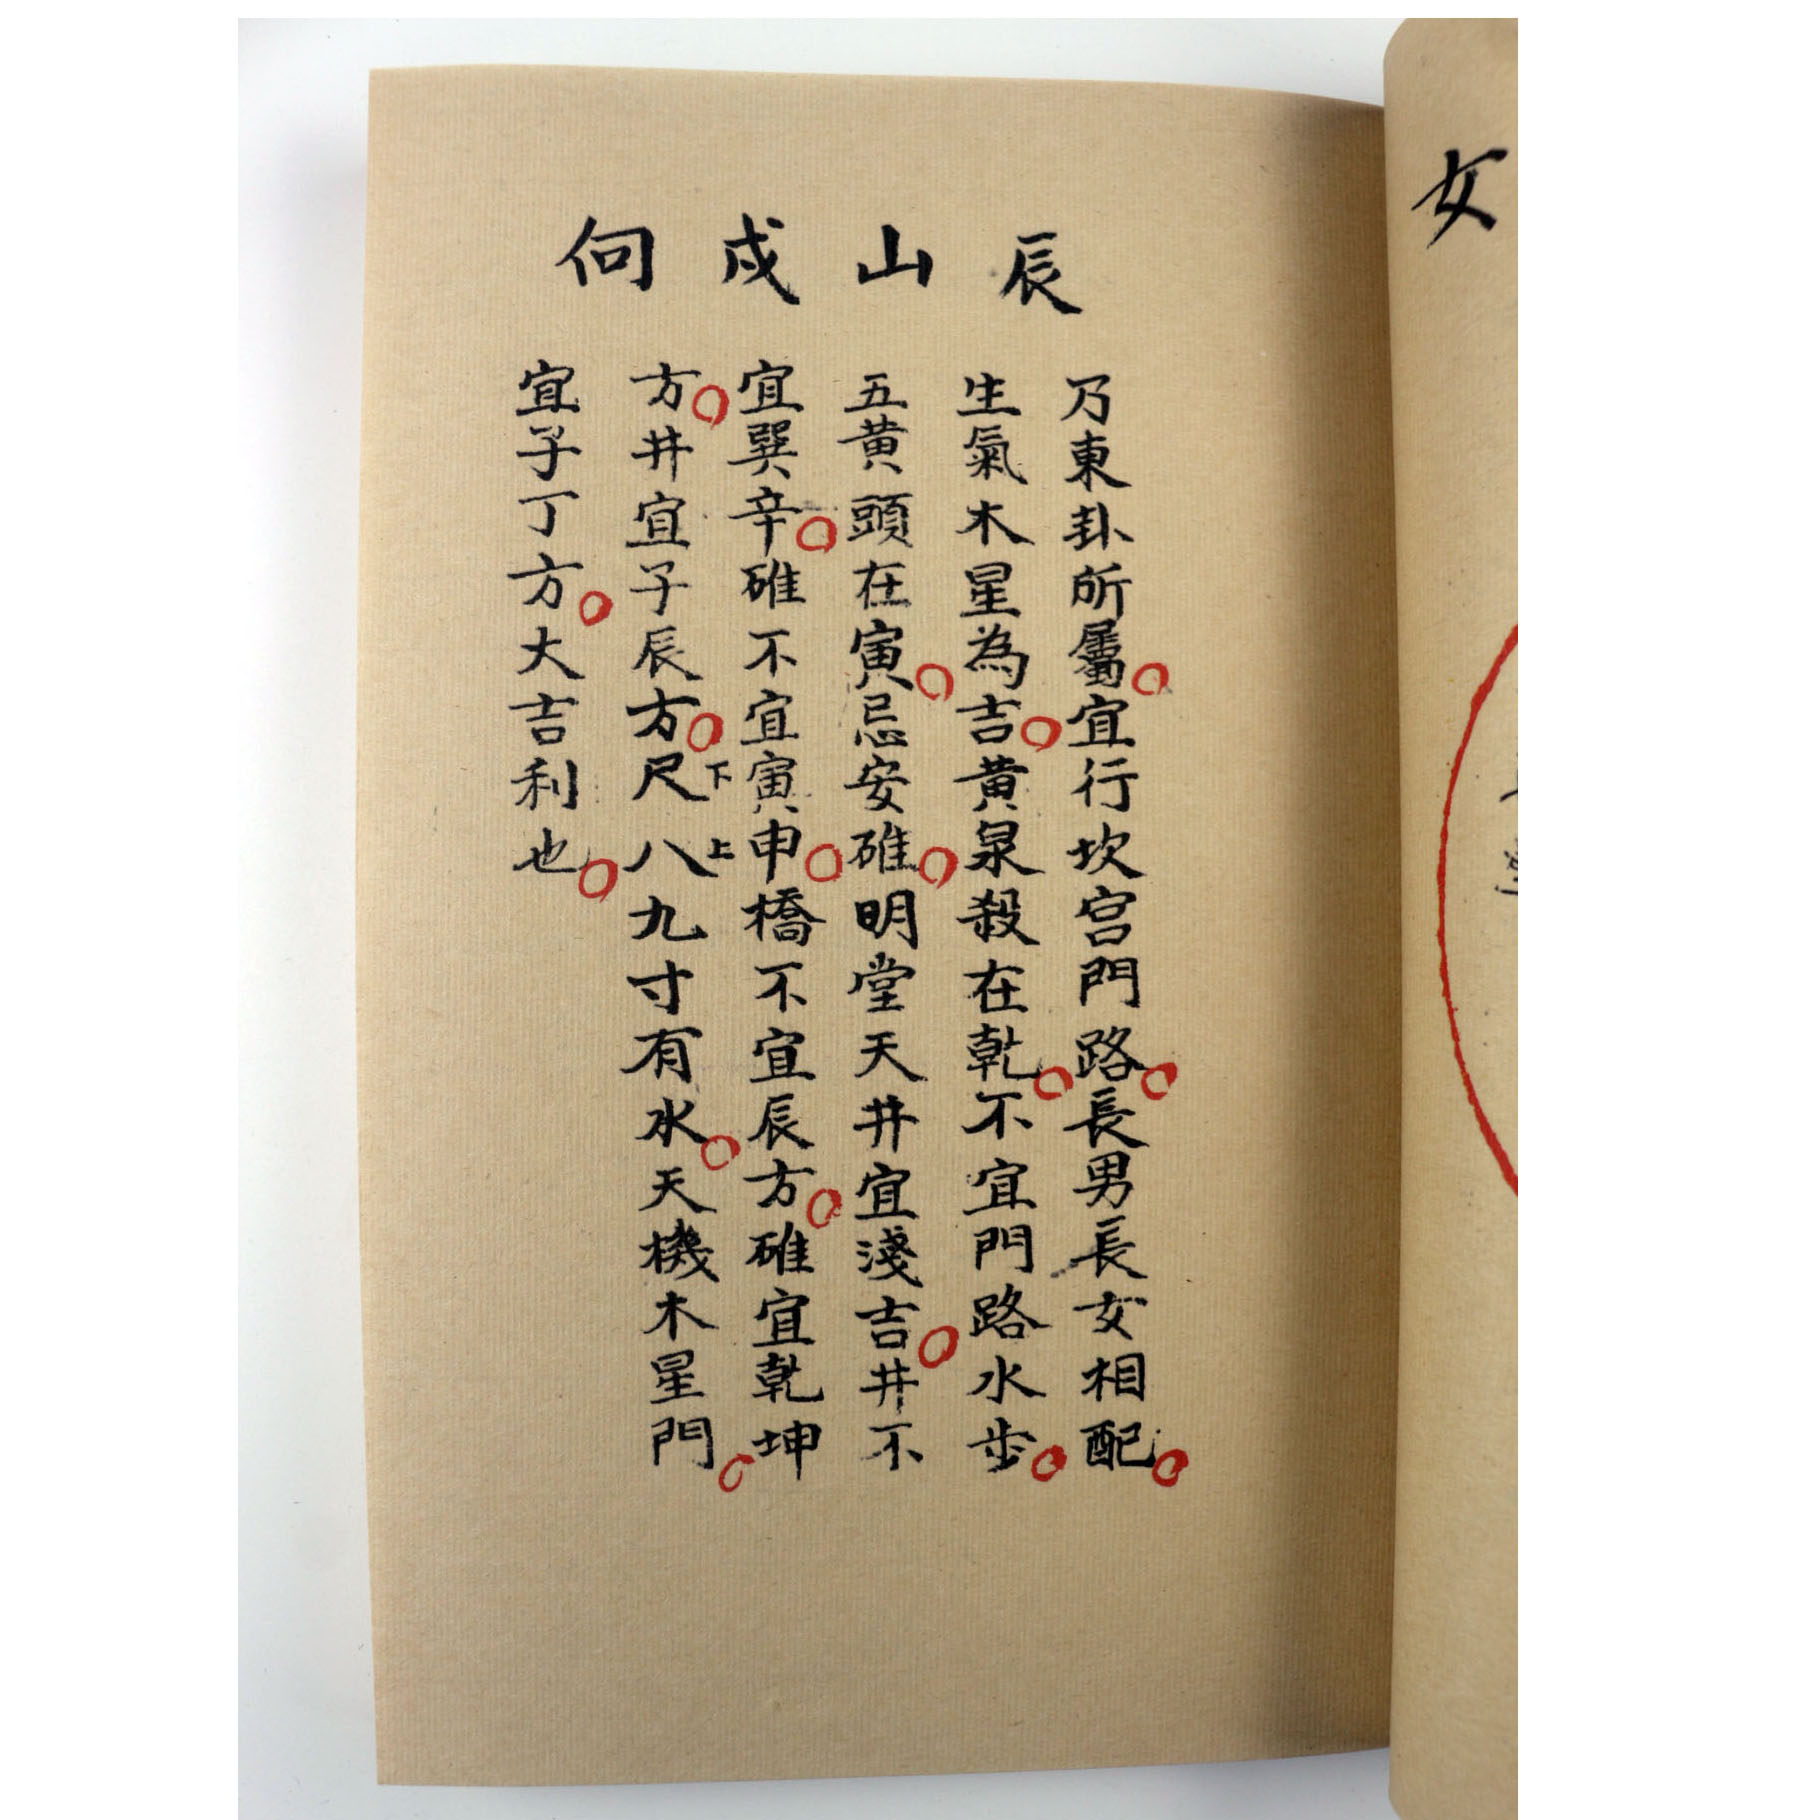 辰山戌向
乃東卦所屬宜行坎宮門路長男長女相配
生氣木星為吉黃泉殺在乾不宜門路水步
五黃頭在寅忌安碓明堂天井宜淺吉井不
宜巽辛碓不宜寅申橋不宜辰方碓宜乾坤
方井宜子辰方尺八九寸有水天機木星門
下上
宜子丁方大吉利也
女